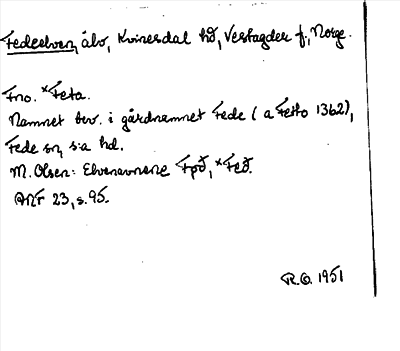 Fedeelven, älv, Kvinesdal hd, Vestagder f., Norge.
Fno. *Feta.
Namnet bev. i gårdnamnet Fede (a Feito 1362),
Fede sn, s:a hd.
M. Olsen: Elvenavnene Fǫð, *Feð.
ANF 23, s. 95.
R.O. 1951